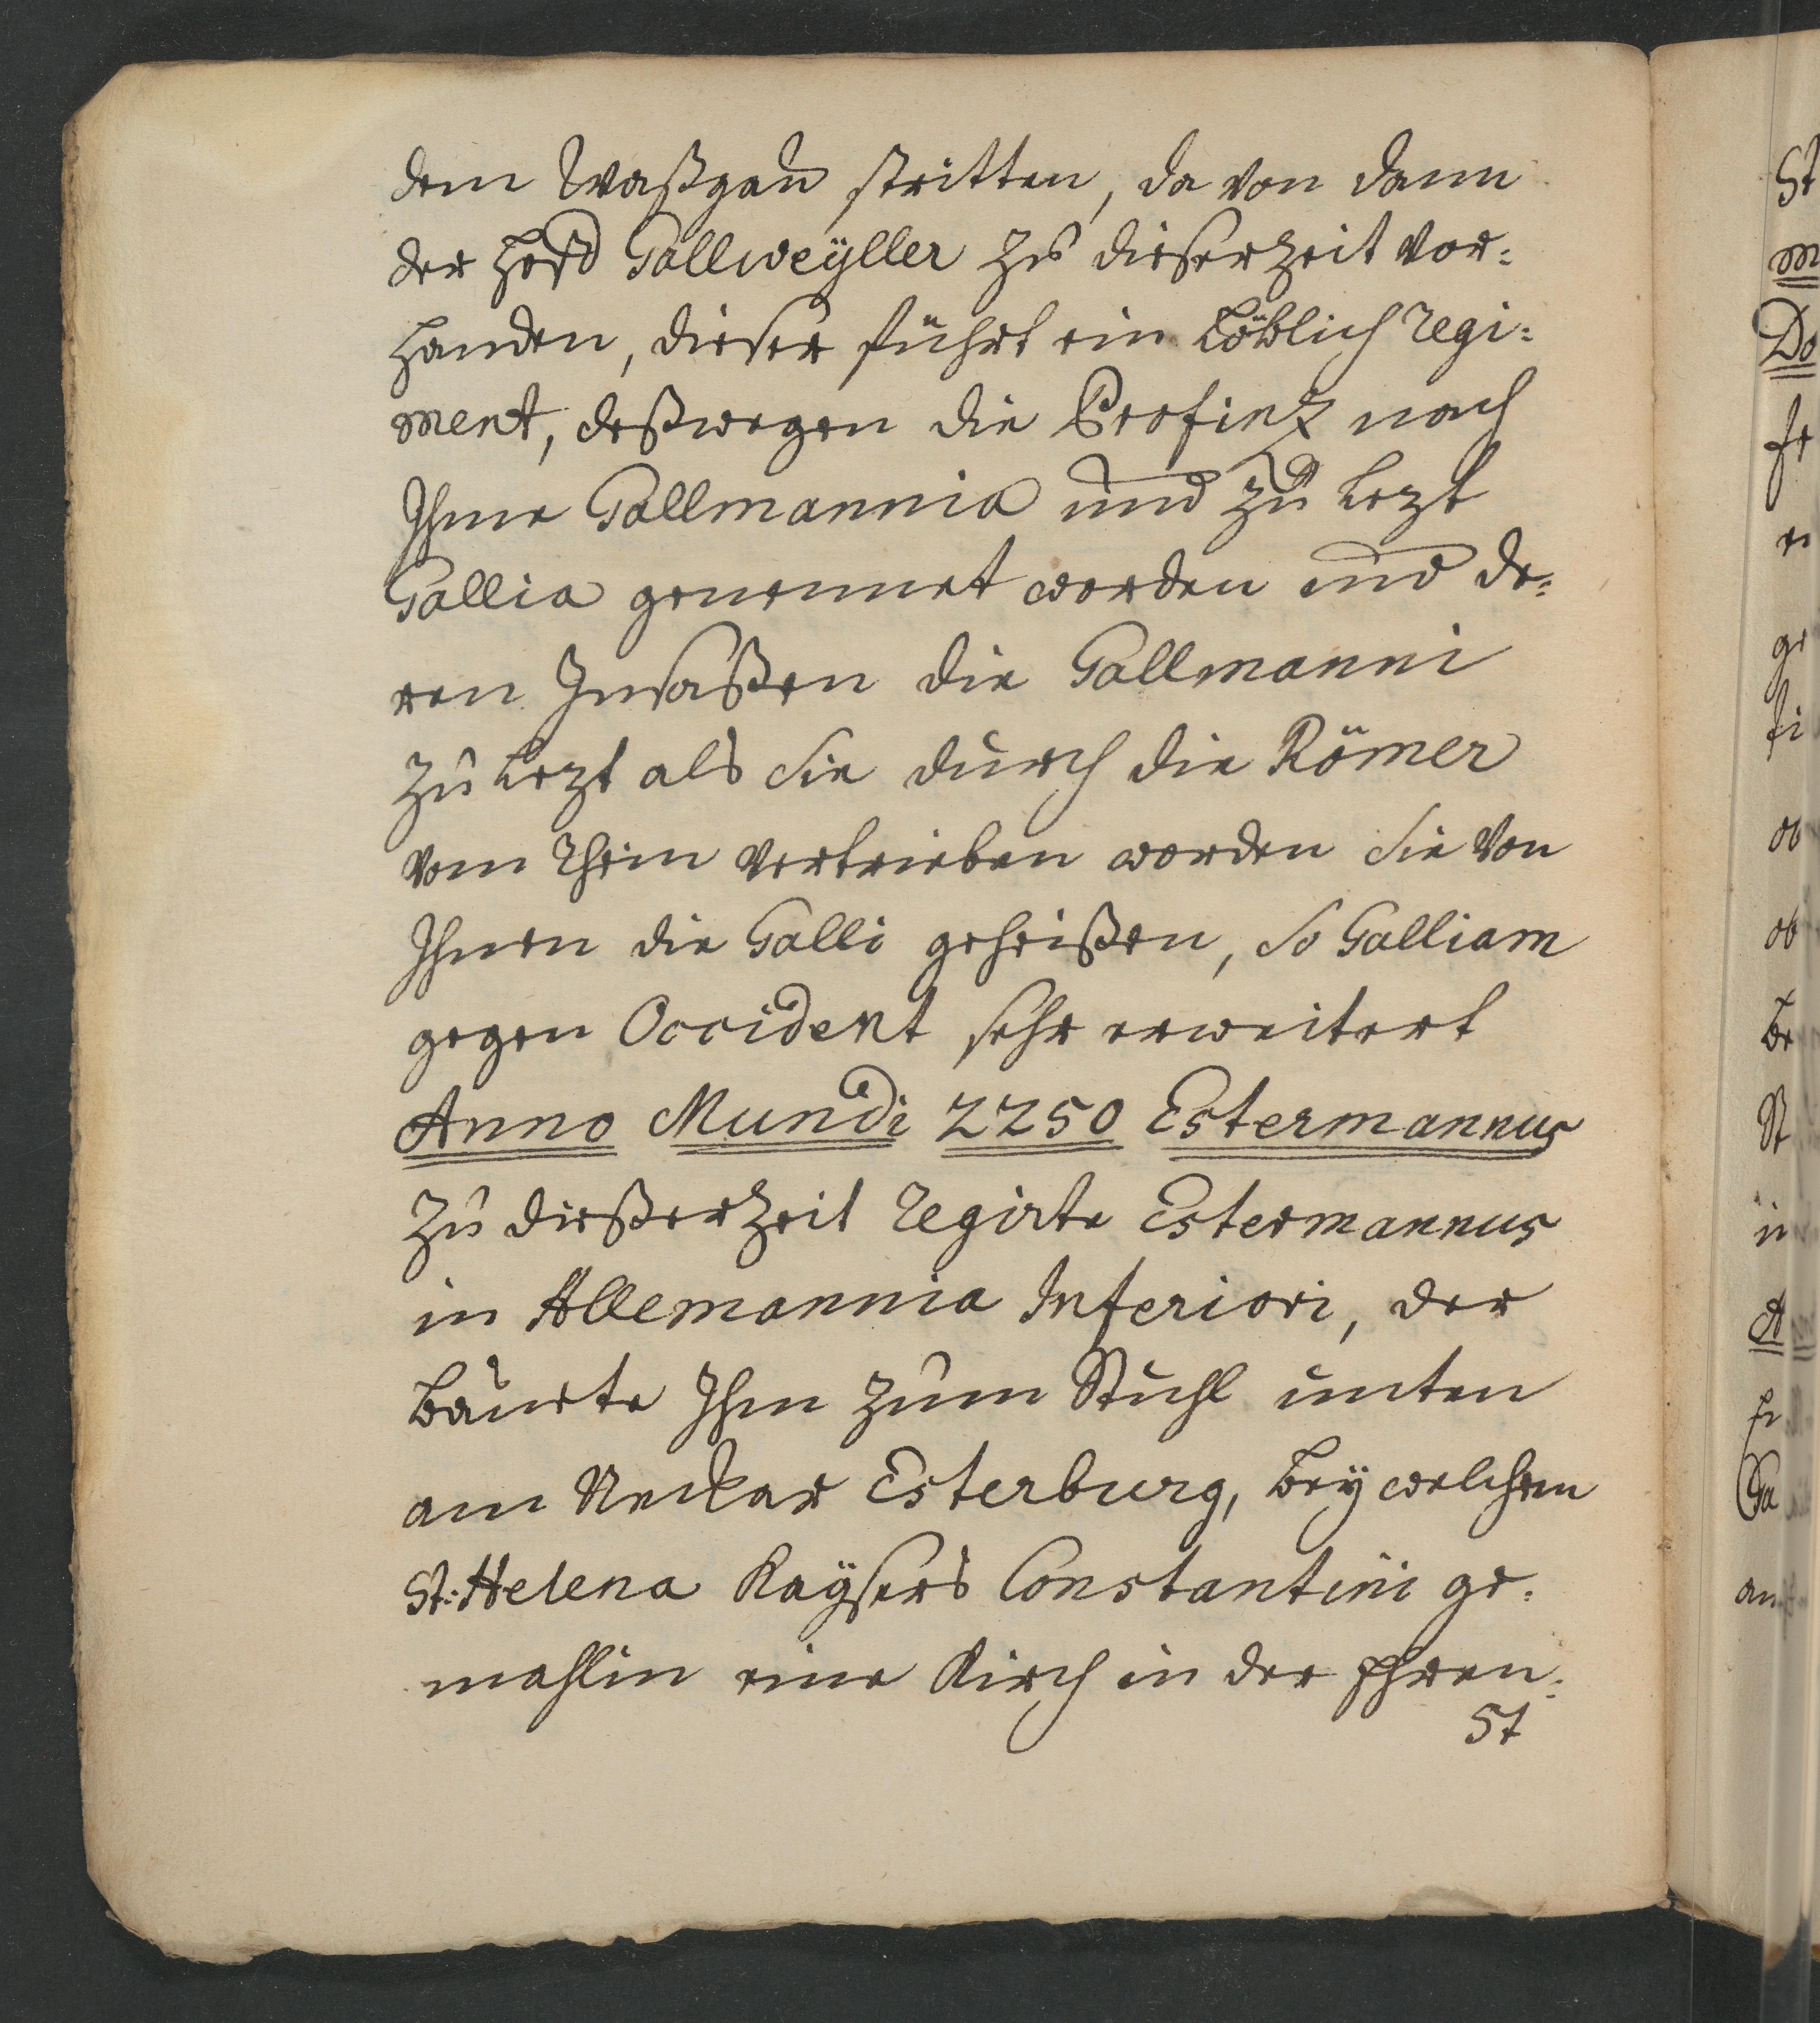 dem Waßgau stritten, da von dann
der Hoff Gallweÿller zu dieser Zeit vor:
handen, dieser führt ein Löblich regi:
ment, deßwegen die Profintz nach
Ihme Gallmannia und zu lezt
Gallia genennet worden und de:
ren Insaßen die Gallmanni
zu lezt als sie durch die Römer
vom Rhein vertrieben worden sie von
Ihnen die Galli geheißen, so Galliam
gegen Occident sehr erweitert
Anno Mundi 2250 Estermannus
Zu dießer Zeit regirte Estermannus
in Allemannia Inferiori, der
bauete Ihm zum Stuhl unten
am Neckar Esterburg, beÿ welchem
St: Helena Kaÿsers Constantini ge:
mahlin eine Kirch in der Ehren:
St